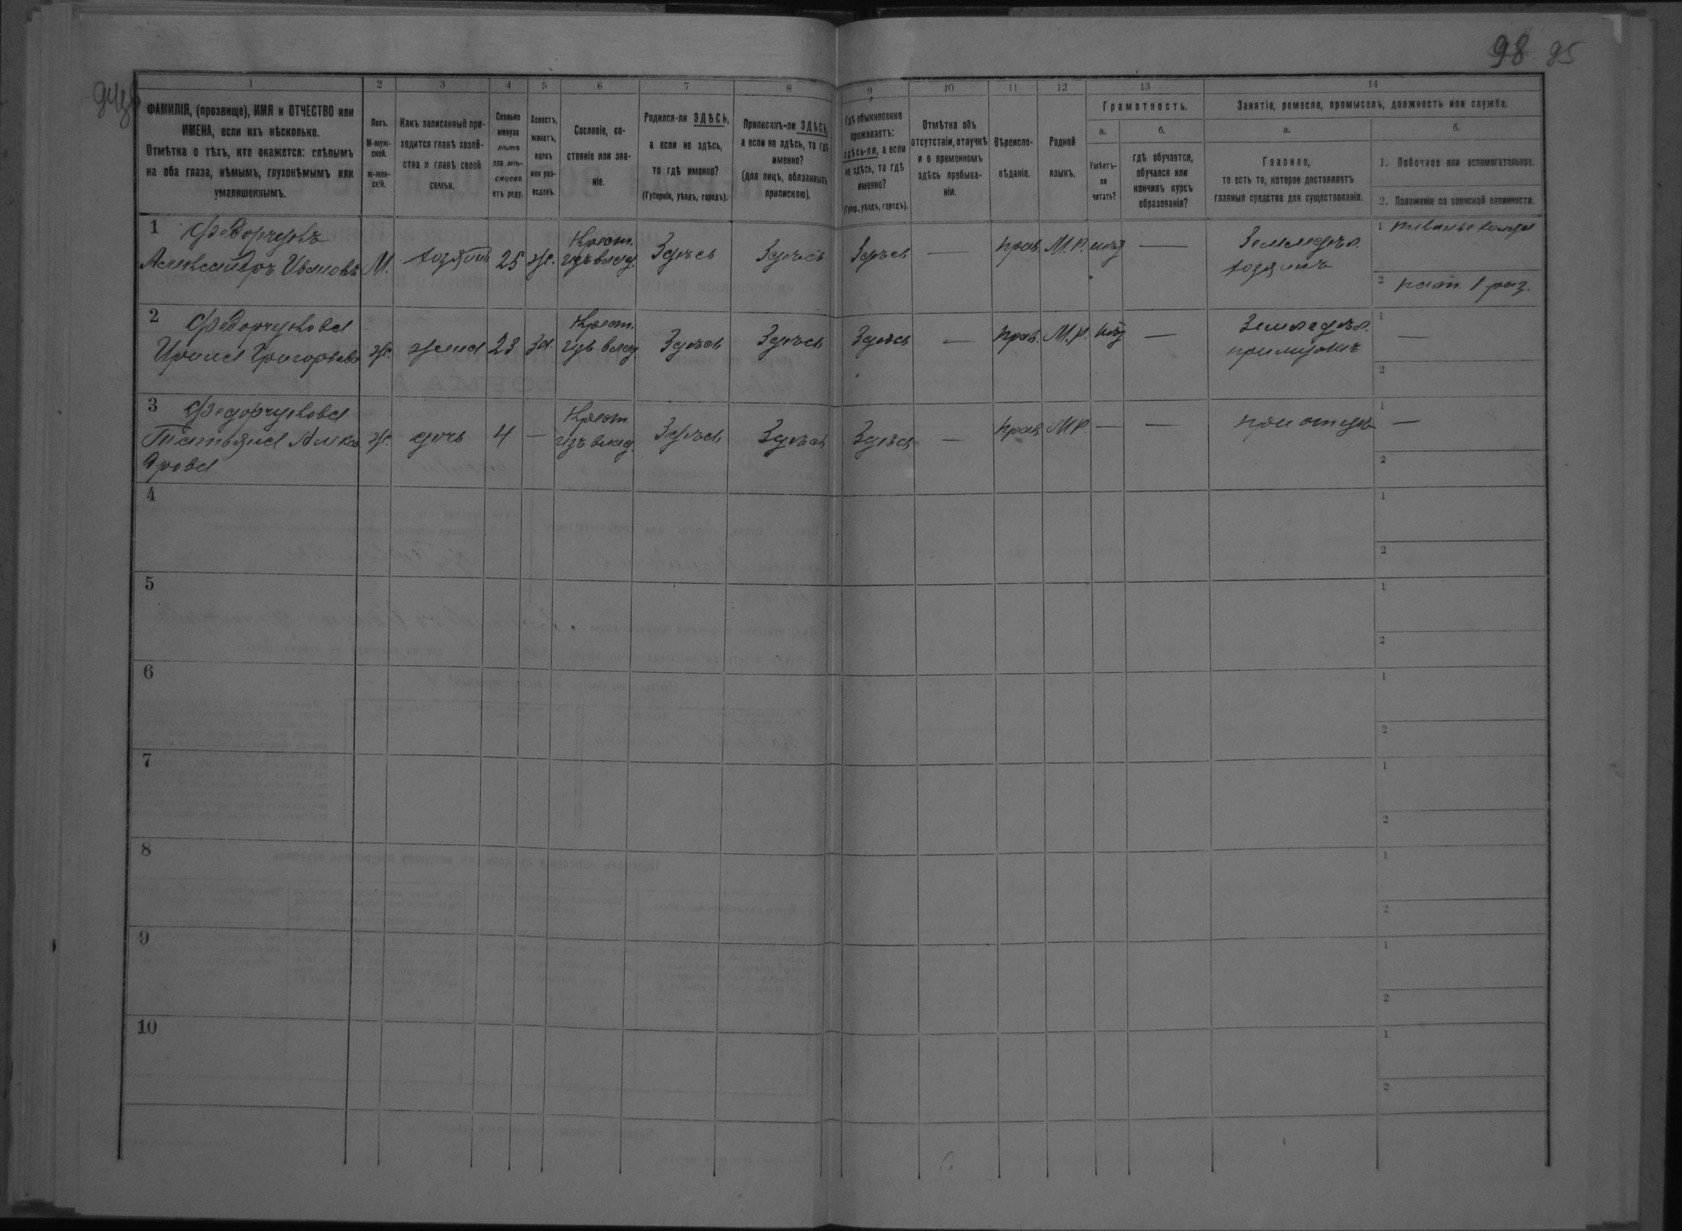 98 95
1 2 3 4 5 6 7 8 9 10 11 12 13 14
ФАМИЛІЯ, (прозвище), ИМЯ и ОТЧЕСТВО или
ИМЕНА, если ихъ нѣсколько.
Отмѣтка о тѣхъ, кто окажется: слѣпымъ
на оба глаза, нѣмымъ, глухонѣмымъ или
умалишеннымъ.
Полъ.
М-муж-
ской.
ж-жен-
скій.
Какъ записанный при-
ходится главѣ хозяй-
ства и главѣ своей
семьи.
Сколько
минуло
лѣтъ
или мѣ-
сяцевъ
отъ роду.
Холостъ,
женатъ,
вдовъ
или раз-
веденъ.
Сословіе, со-
стояніе или зва-
ніе.
Родился-ли ЗДѢСЬ,
а если не здѣсь,
то гдѣ именно?
(Губернія, уѣздъ, городъ).
Приписанъ-ли ЗДѢСЬ,
а если не здѣсь, то гдѣ
именно?
(для лицъ, обязанныхъ
припискою).
Гдѣ обыкновенно
проживаетъ:
здѣсь-ли, а если
не здѣсь, то гдѣ
именно?
(Губ., уѣздъ, городъ).
Отмѣтка объ
отсутствіи, отлучкѣ
и о временномъ
здѣсь пребыва-
ніи.
Вѣроиспо-
вѣданіе.
Родной
языкъ.
Грамотность.
а.
Умѣетъ-
ли
читать?
б.
гдѣ обучается,
обучался или
кончилъ курсъ
образованія?
Занятіе, ремесло, промыселъ, должность или служба.
а.
Главное,
то есть то, которое доставляетъ
главныя средства для существованія.
б.
1. Побочное или вспомогательное.
2. Положеніе по воинской повинности.
1 Федорчукъ
Александръ Ивановъ М. хозяинъ 25 ж. Крест. изъ влад. Здѣсь Здѣсь Здѣсь — прав. М.Р. нѣтъ — Земледѣл. хозяинъ
1
2 ратн. 1 раз.
2 Федорчукова
Ирина Григорьева ж. жена 23 За. Крест. изъ влад. Здѣсь Здѣсь Здѣсь — прав. М.Р. нѣтъ — Земледѣл. при мужѣ
1 —
2
3 Федорчукова
Татьяна Алексан
дрова ж. дочь 4 — Крест. изъ влад. Здѣсь Здѣсь Здѣсь — прав. М.Р. — — при отцѣ
1 —
2
4
1
2
5
1
2
6
1
2
7
1
2
8
1
2
9
1
2
10
1
2